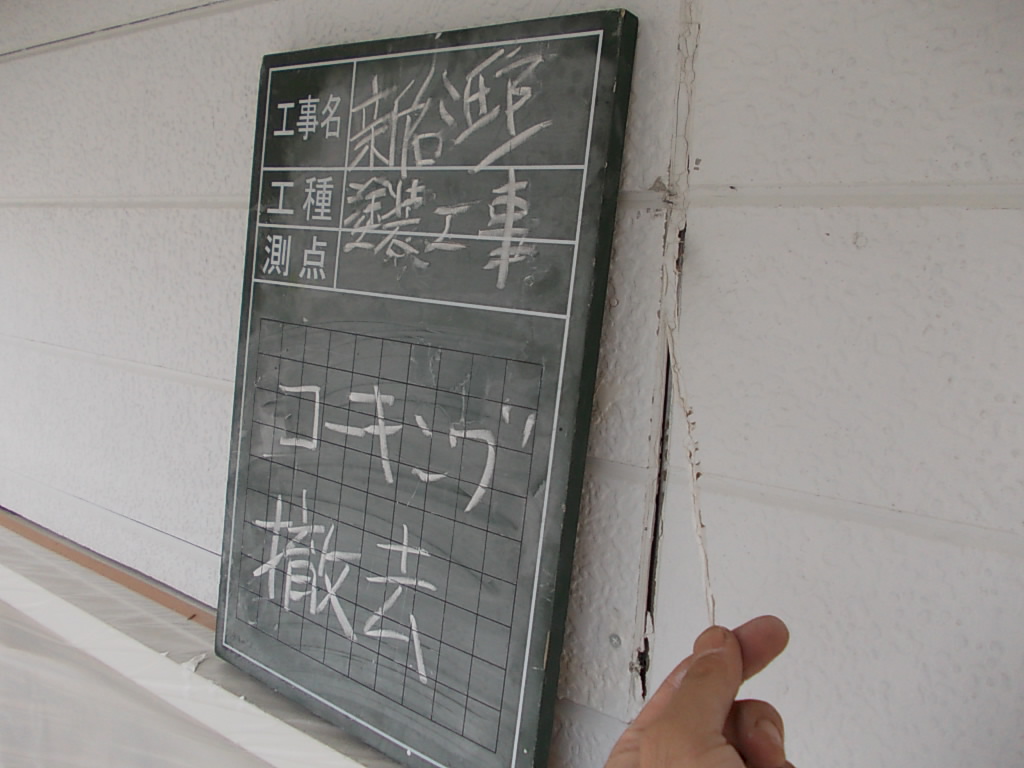 工事名 新谷邸
工種 塗装工事
測点
コーキング
撤去